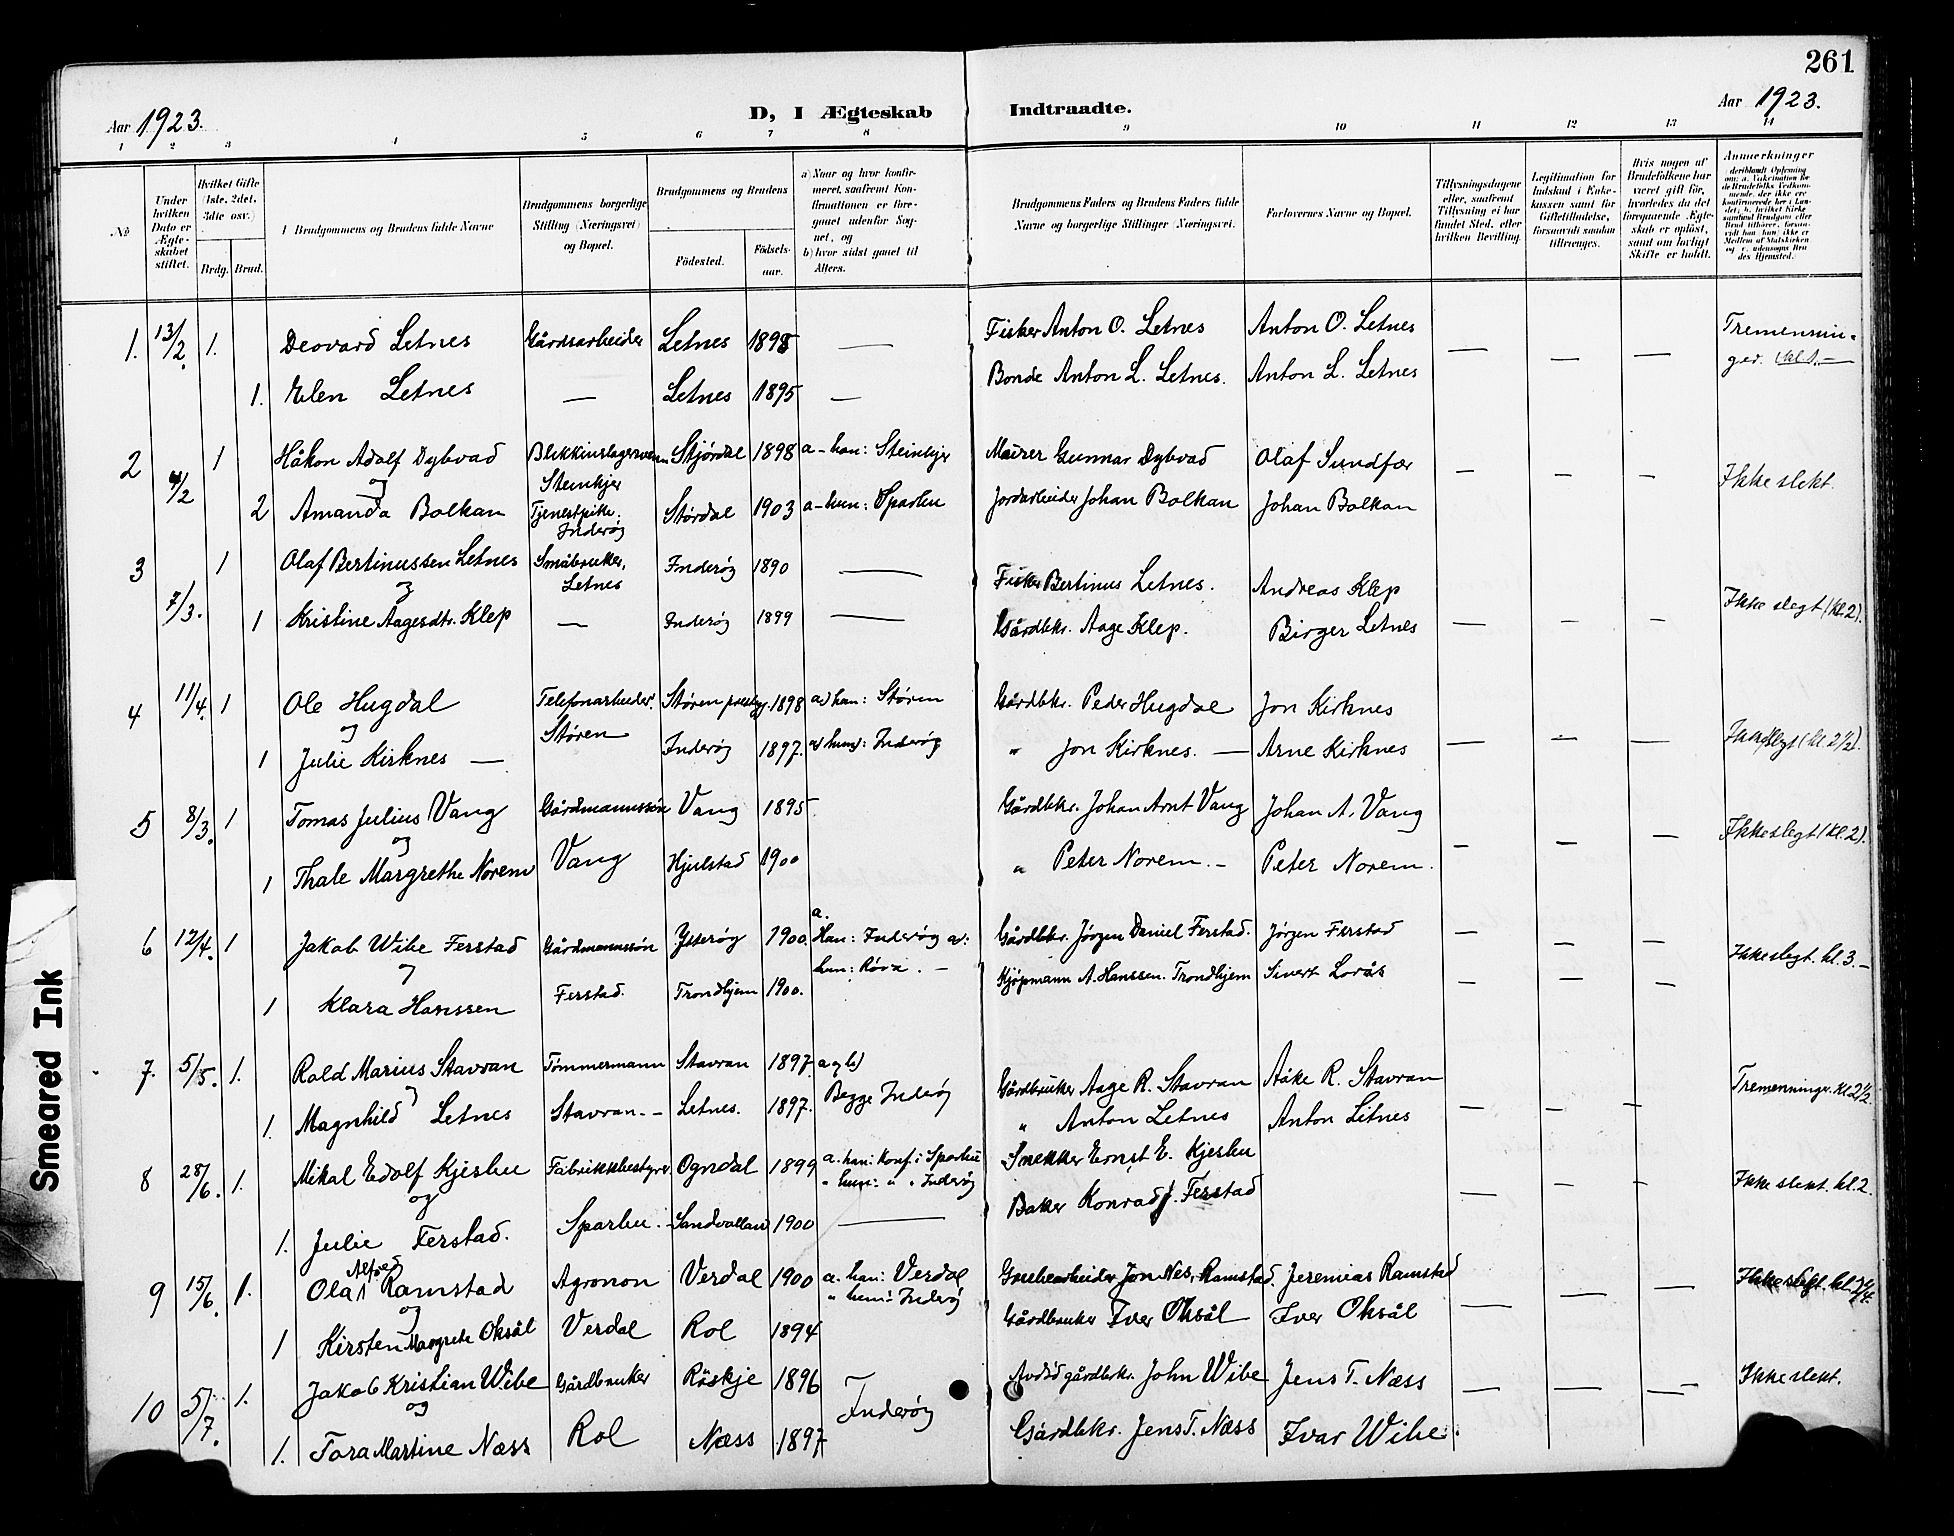 261
Aar 1923.
D, I Ægteskab Indtraadte.
Aar 1923.
1 2 3 4 5 6 7 8 9 10 11 12 13 14
No
Under hvilken Dato er Ægteskabet stiftet.
Hvilket Gifte (1ste, 2det, 3die osv.)
Brdg. Brud.
Brudgommens og Brudens fulde Navne
Brudgommens borgerlige Stilling (Næringsvei) og Bopæl.
Brudgommens og Brudens
Fødested. Fødselsaar.
a) Naar og hvor konfirmeret, saafremt Konfirmationen er foregaaet udenfor Sognet, og
b) hvor sidst gaaet til Alters.
Brudgommens Faders og Brudens Faders fulde Navne og borgerlige Stillinger (Næringsvei).
Forlovernes Navne og Bopæl.
Tillysningsdagene eller, saafremt Tillysning ei har fundet Sted, efter hvilken Bevilling.
Legitimation for Indskud i Enkekassen samt for Giftetilladelse, forsaavidt saadan tiltrænges.
Hvis nogen af Brudefolkene har været gift før, hvorledes da det foregaaende Ægteskab er opløst, samt om lovligt Skifte er holdt.
Anmerkninger
1. 13/2. 1. Deovard Letnes Gårdsarbeider Letnes 1898 — Fisker Anton O. Letnes Anton O. Letnes — — — Tremennin-
1. Elen Letnes — Letnes 1895 — Bonde Anton L. Letnes. Anton L. Letnes ger. (kl. 1. —
2 4/2 1 Håkon Adolf Dybvad Blikkinslagersvenn Stjørdal 1898 a - han: Steinkjer Murer Gunnar Dybvad Olaf Sundfær — — — Ikke slekt.
og Steinkjer
2 Amanda Bolkan Tjenestpike. Størdal 1903 a - hun: Sparbu Jordarbeider Johan Bolkan Johan Bolkan
Inderøy
3 7/3. 1 Olaf Bertinussen Letnes Småbruker, Inderøy 1890 — Fisker Bertinus Letnes. Andreas Klep
og Letnes
1 Kristine Aagesdtr. Klep — Inderøy 1899 — Gårdbkr. Aage Klep. Birger Letnes — — — Ikke slegt (kl. 2).
4 11/4. 1 Ole Hugdal Telefonarbeider. Støren 1898 a) han: Støren Gårdbkr. Peder Hugdal Jon Kirknes
og Støren
1 Julie Kirknes — Inderøy 1897. a) hun: Inderøy " Jon Kirknes. — Arne Kirknes — — — (kl. 2 1/2).
5 8/3. 1 Tomas Julius Vang Gårdmannssøn Vang 1895. Gårdbkr. Johan Arnt Vang Johan A. Vang
og Vang
1 Thale Margrethe Norem Hjulstad 1900 " Peter Norem. — Peter Norem. — — — Ikke slegt (kl. 2).
6 12/4. 1 Jakob Wibe Ferstad Gårdmannssøn Ytterøy 1900. a. Han: Inderøy a: Gårdbkr. Jørgen Daniel Ferstad. Jørgen Ferstad — — —
og hun:
1 Klara Hanssen Ferstad. Trondhjem 1900. Kjøpmann A. Hanssen. Trondhjem Sivert Lorås — — — Ikke slegt. kl. 3. —
7. 5/5. 1. Rald Marius Stavran Tømmermann Stavran 1897. a og b) Gårdbruker Aage R. Stavran Aåke R. Stavran
1. Magnhild Letnes Stavran. — Letnes. 1897. Begge Inderøy " Anton Letnes Anton Letnes — — — Tremenninger. kl. 2 1/2.
8 28/6. 1. Mikal Edolf Kjesbu Fabrikkbestyrer Ogndal 1899 a. han: konf. i Sparbu Snekker Ernst E. Kjesbu
og " hun: " " Inderøy
1. Julie Ferstad. Sparbu. — Sandvollan 1900 — Baker Konrad J. Ferstad — — — Ikke slekt. kl. 2.
9 15/6. 1. Olaf Alfred Ramstad Agronom Verdal 1900 a. han: Verdal Jon Nes. Ramstad. Jeremias Ramstad
og " hun: Inderøy
1 Kirsten Margrete Oksål Verdal Rol 1894 Gårdbruker Iver Oksål Iver Oksål — — — Ikke slegt.
10 5/7. 1. Jakob Kristian Wibe Gårdbruker Røskje 1896 Inderøy Avdød gårdbrkr. John Wibe Jens T. Næss — — — Ikke slekt.
og
1. Tora Martine Næss Rol Næss 1897 Gårdbkr. Jens T. Næss Ivar Wibe.
Smeared Ink